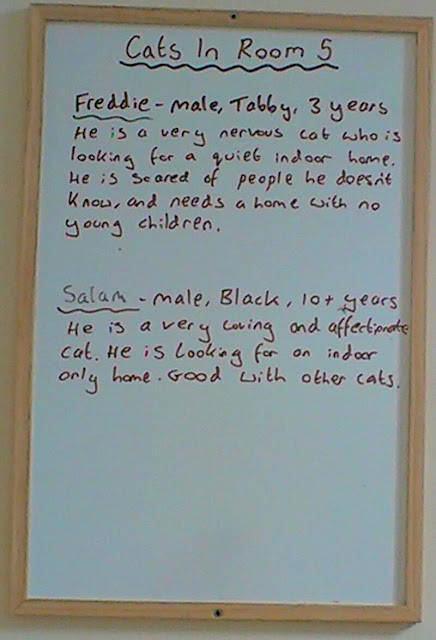 Cats In Room 5
Freddie - male, Tabby, 3 years
He is a very nervous cat who is
looking for a quiet indoor home.
He is scared of people he doesn't
know, and needs a home with no
young children.
Salam - male, Black, 10+ years
He is a very loving and affectionate
cat. He is looking for an indoor
only home. Good with other cats.